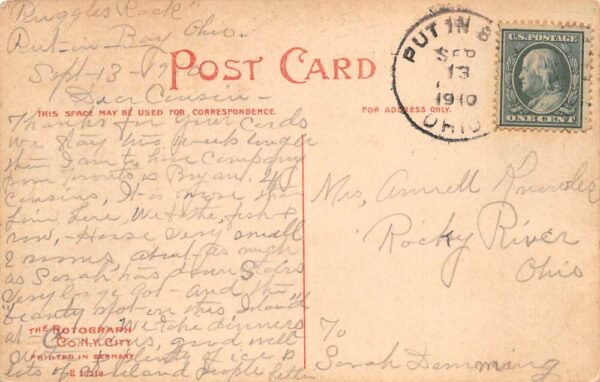 "Ruggles Rock"
Put-in-Bay Ohio-
Sept-13-
POST CARD
Dear Cousin-
THIS SPACE MAY BE USED FOR CORRESPONDENCE.
FOR ADDRESS ONLY.
Thanks for your Cards
We stay two weeks longer
then I am to have Company
from
Cousins, It is more than
fine here, We fish &
row,- House very small
2 rooms about as
as Sarah has down Stairs
Very large lot- and the
"beauty spot on this Island"
We take dinners
at good well
plenty of ice &
lots of Cleveland people
THE ROTOGRAPH
CO. N.Y. CITY
PRINTED IN GERMANY
PUT IN B
SEP
13
1910
OHIO
U.S. POSTAGE
ONE CENT
Mrs, Knowles
Rocky River
Ohio
To
Sarah Demming